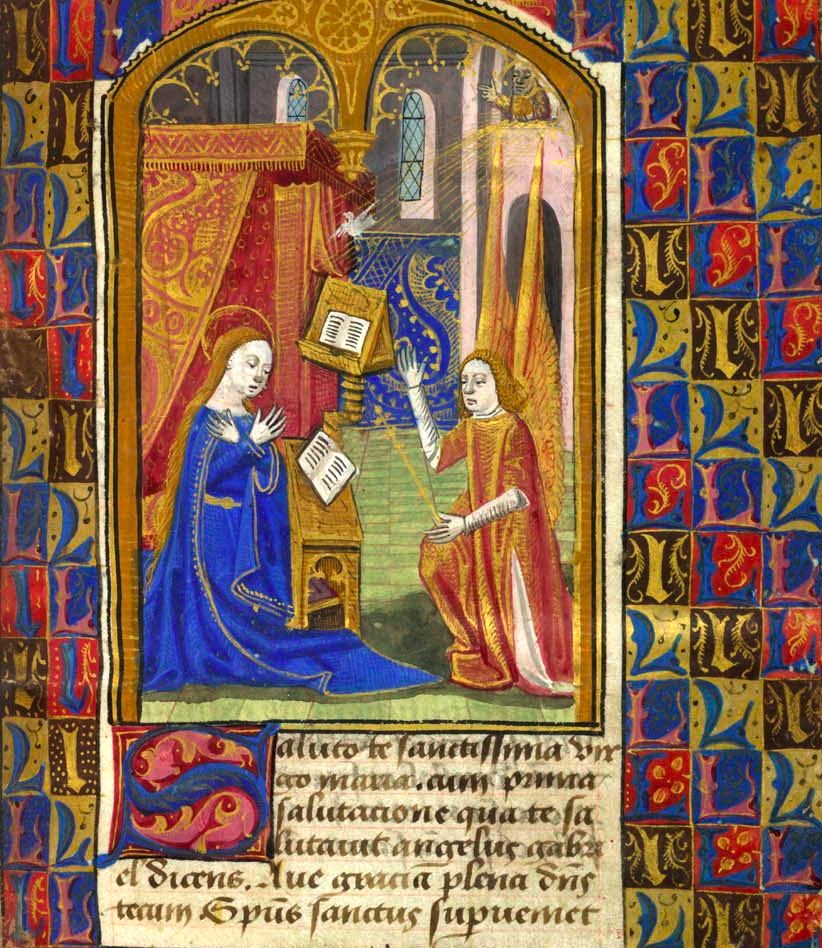 Saluto te sanctissima vir
go maria. cum prima
salutacione qua te sa
lutauit angelus gabri
el dicens. Aue graciā plena dn̄s
tecum Spūs sanctus supueniet